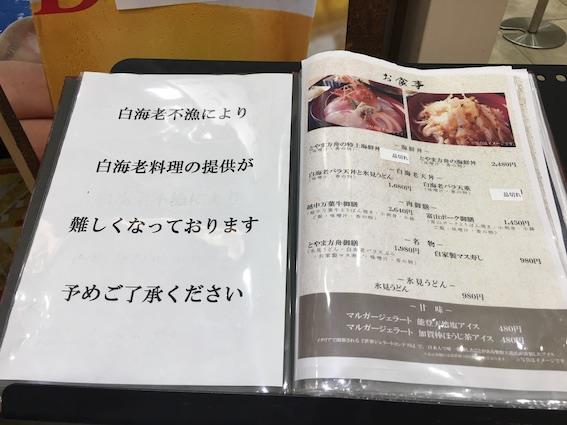 白海老不漁により
白海老料理の提供が
難しくなっております
予めご了承ください
お食事
－海鮮丼－
とやま方舟の特上海鮮丼
品切れ
とやま方舟の海鮮丼 2,480円
－白海老天丼－
白海老バラ天丼と氷見うどん 1,680円
白海老バラ天重
品切れ
－肉御膳－
越中万葉牛御膳 2,640円
富山ポーク御膳 1,450円
－名物－
とやま方舟御膳 1,980円
自家製マス寿し 980円
－氷見うどん－
氷見うどん 980円
－甘味－
マルガージェラート 能登天然塩アイス 480円
マルガージェラート 加賀棒ほうじ茶アイス 480円